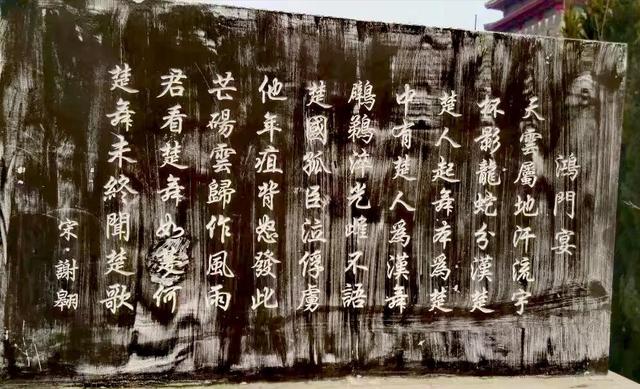 鴻門宴
天雲屬地汗流宇
杯影龍蛇分漢楚
楚人起舞本爲楚
中有楚人爲漢舞
鸊鵜淬光雌不語
楚國孤臣泣俘虜
他年疽背怒發此
芒碭雲歸作風雨
君看楚舞如楚何
楚舞未終聞楚歌
宋·謝翱